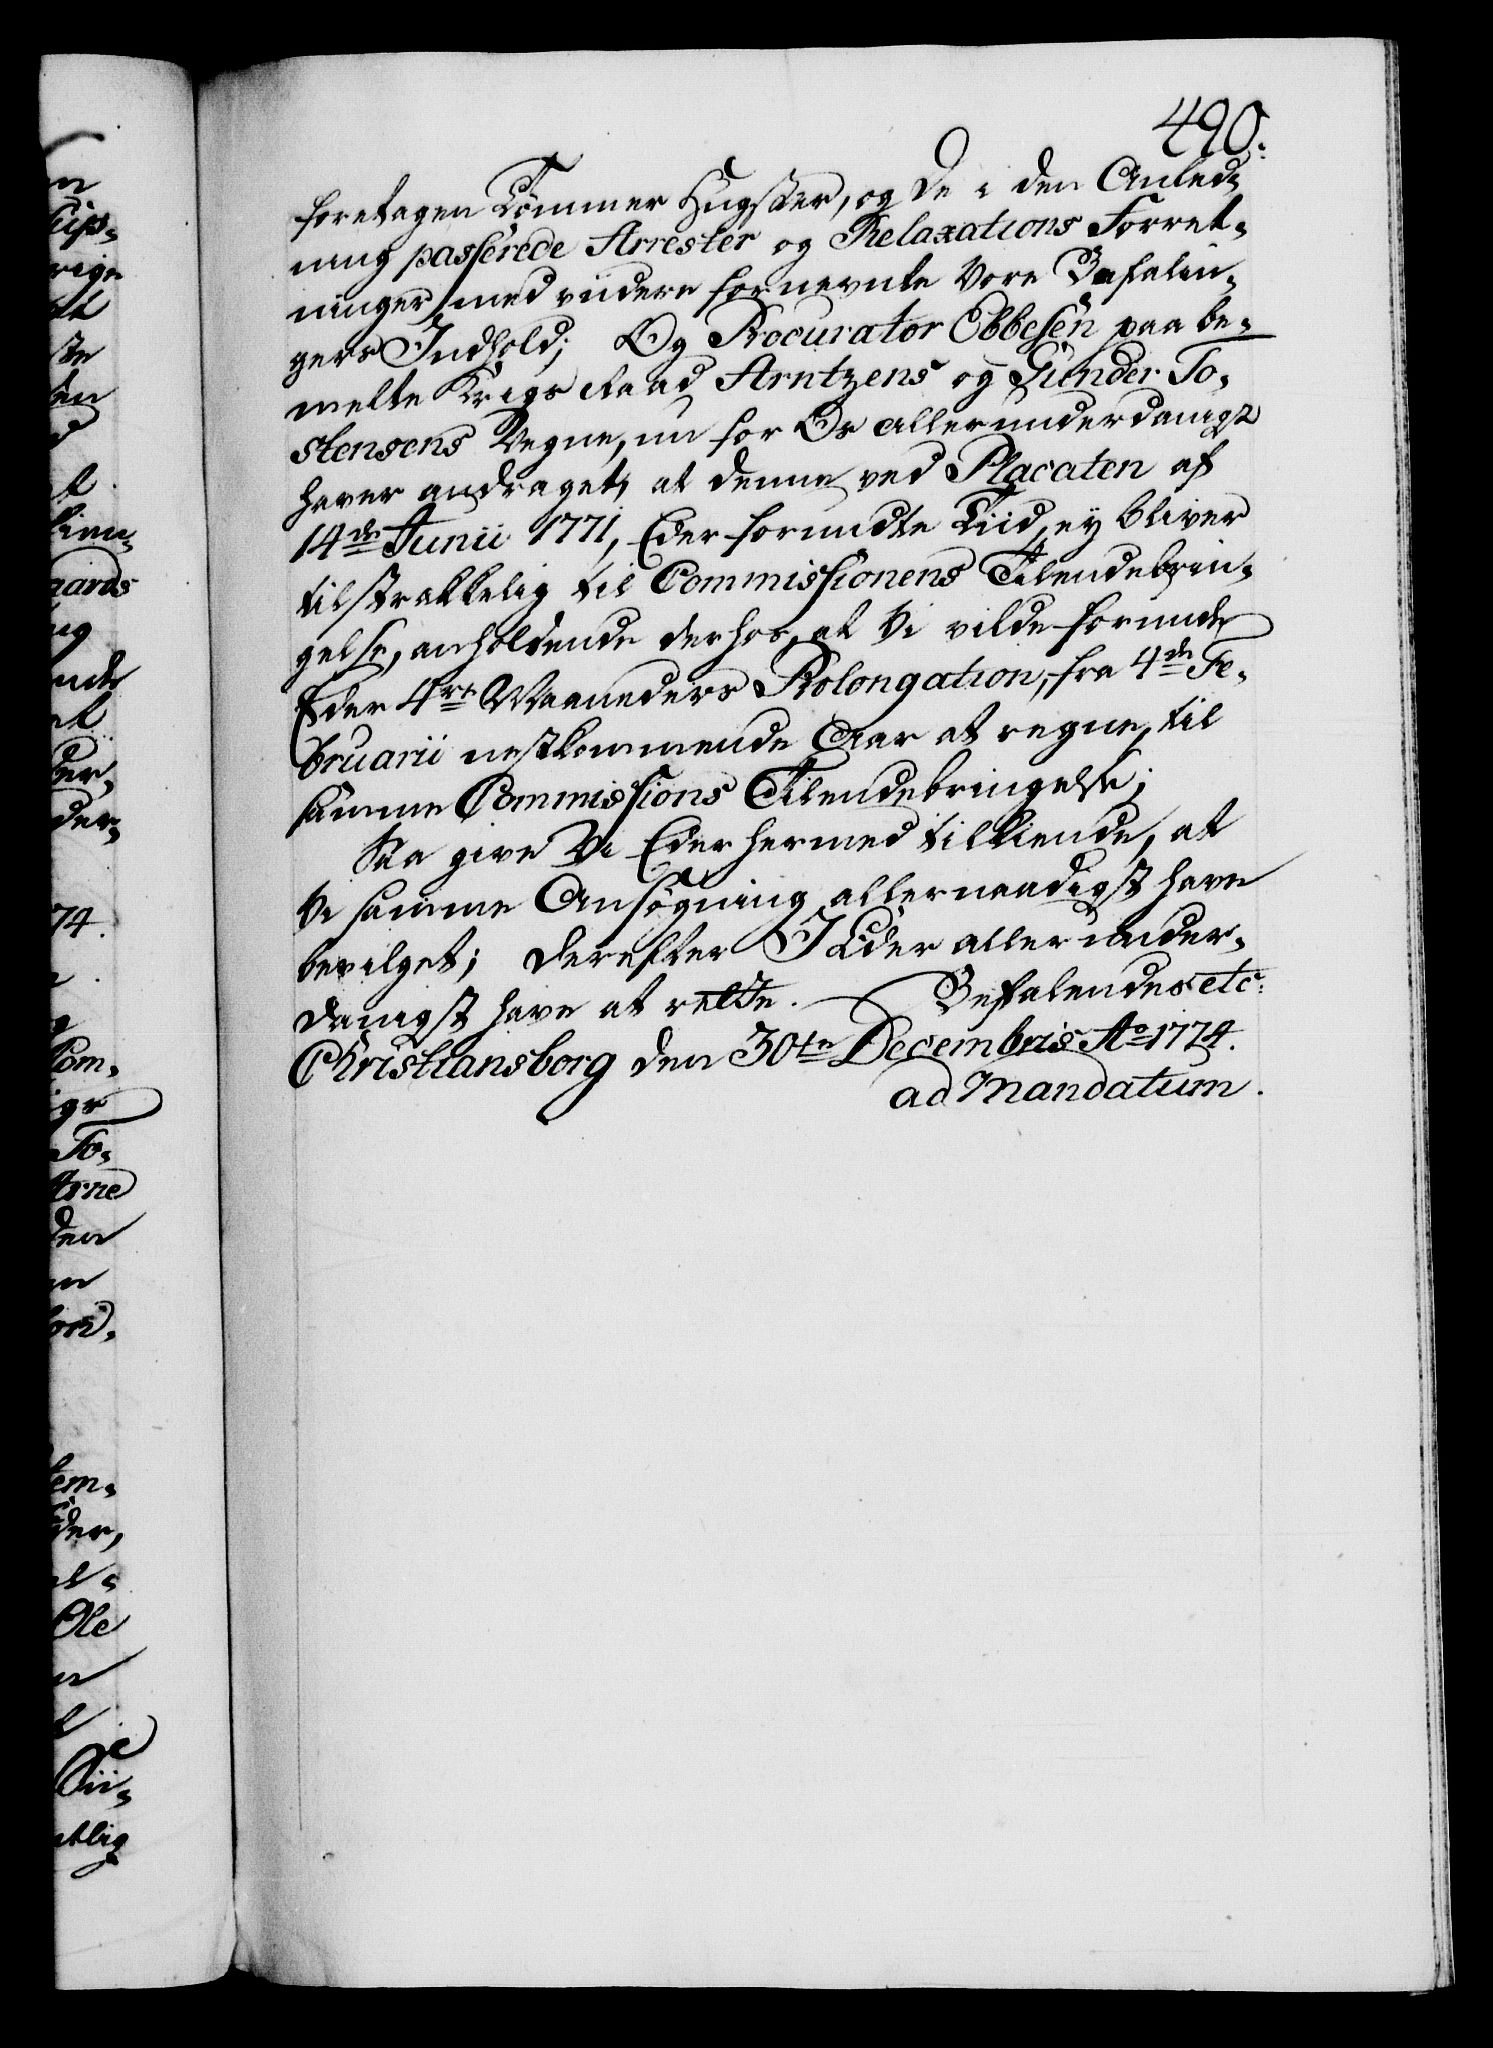 490.
foretagen Tømmer Hugster, og de i den Anled-
ning passerede Arrester og Relaxations Forret-
ninger med viidere fornevnte Vore Befalin-
gers Indhold; Og Procurator Ebbesen paa be-
melte Krigs Raad Arntzens og Gunder To-
stensens Vegne, nu for Os allerunderdanigst
haver andraget, at denne ved Placaten af
14de Junii 1771, Eder forundte Tiid, ey bliver
tilstrækkelig til Commissionens Tilendebrin-
gelse, anholdende derhos, at Vi vilde forunde
Eder 4re Maaneders Prolongation, fra 4de Fe-
bruarii nestkommende Aar at regne, til
samme Commissions Tilendebringelse;
Saa give Vi Eder hermed tilkiende, at
Vi samme Ansøgning allernaadigst have
bevilget; Derefter I Eder allerunder-
danigst have at rette. Befalendes etc:
Christiansborg den 30te Decembris Ao 1774.
ad Mandatum.
n
rige
ste
den
aards
ug
nde
et
der-
74.
Com-
To-
Arne
den
n
tem-
Eder,
Ole
n
ntlig